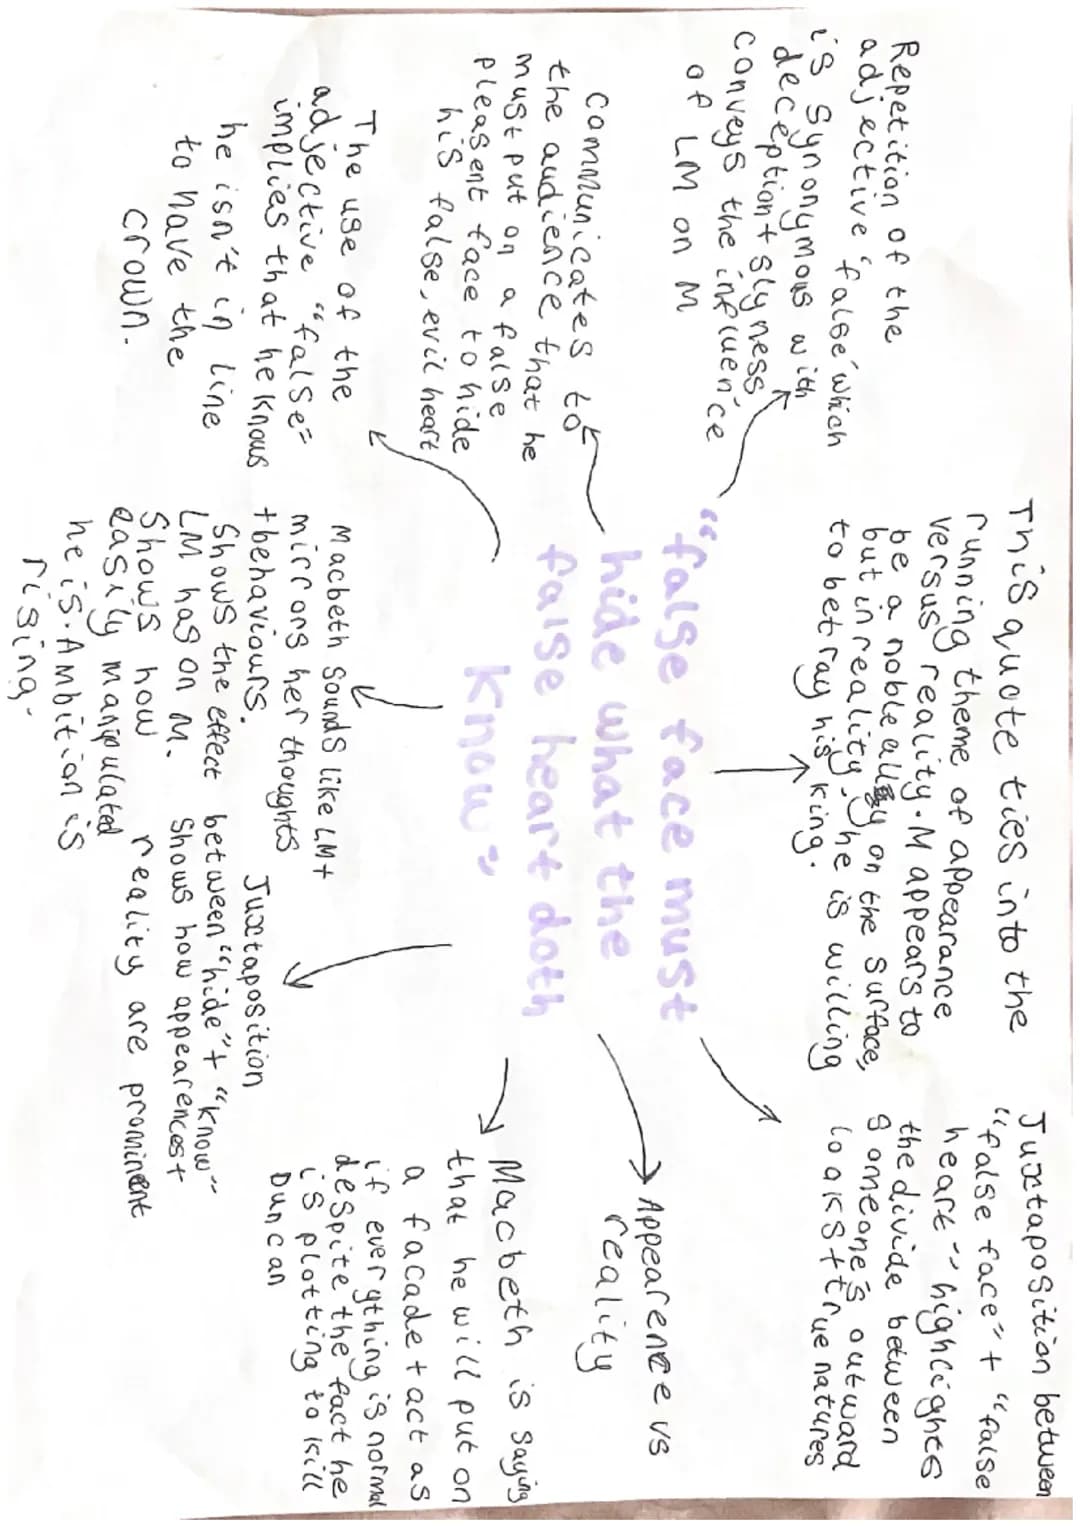 Repetition of the
adjective "false" which
is synonymous with
deception + slyness
conveys the influence
of LM on M
This quote ties into the
running theme of appearance
versus reality. M appears to
be a noble ally on the surface,
but in reality, he is willing
to betray his king.
Juxtaposition between
"false face" + "false
heart" highlights
the divide between
someone's outward
looks + true natures
communicates to
the audience that he
must put on a false
pleasent face to hide
his false, evil heart
"false face must
hide what the
false heart doth
know"
Appearence vs
reality
The use of the
adjective "false"
implies that he knows
he isn't in line
to have the
crown.
Macbeth sounds like LM +
mirrors her thoughts
+ behaviours.
Shows the effect
LM has on M.
Shows how
easily manipulated
he is. Ambition is
rising.
Juxtaposition
between "hide" + "know"
Shows how appearences +
reality are prominent
Macbeth is saying
that he will put on
a facade + act as
if everything is normal
despite the fact he
is plotting to kill
Duncan